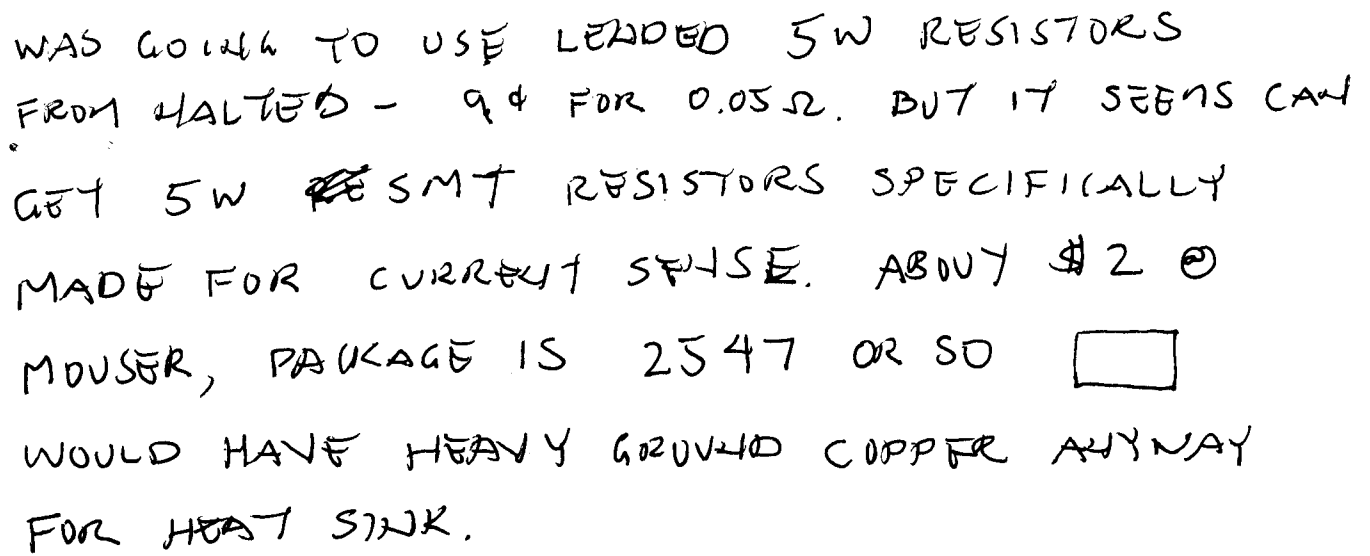 WAS GOING TO USE LEADED 5W RESISTORS
FROM HALTED - 9¢ FOR 0.05Ω. BUT IT SEEMS CAN
GET 5W SMT RESISTORS SPECIFICALLY
MADE FOR CURRENT SENSE. ABOUT $2 @
MOUSER, PACKAGE IS 2547 OR SO
WOULD HAVE HEAVY GROUND COPPER ANYWAY
FOR HEAT SINK.